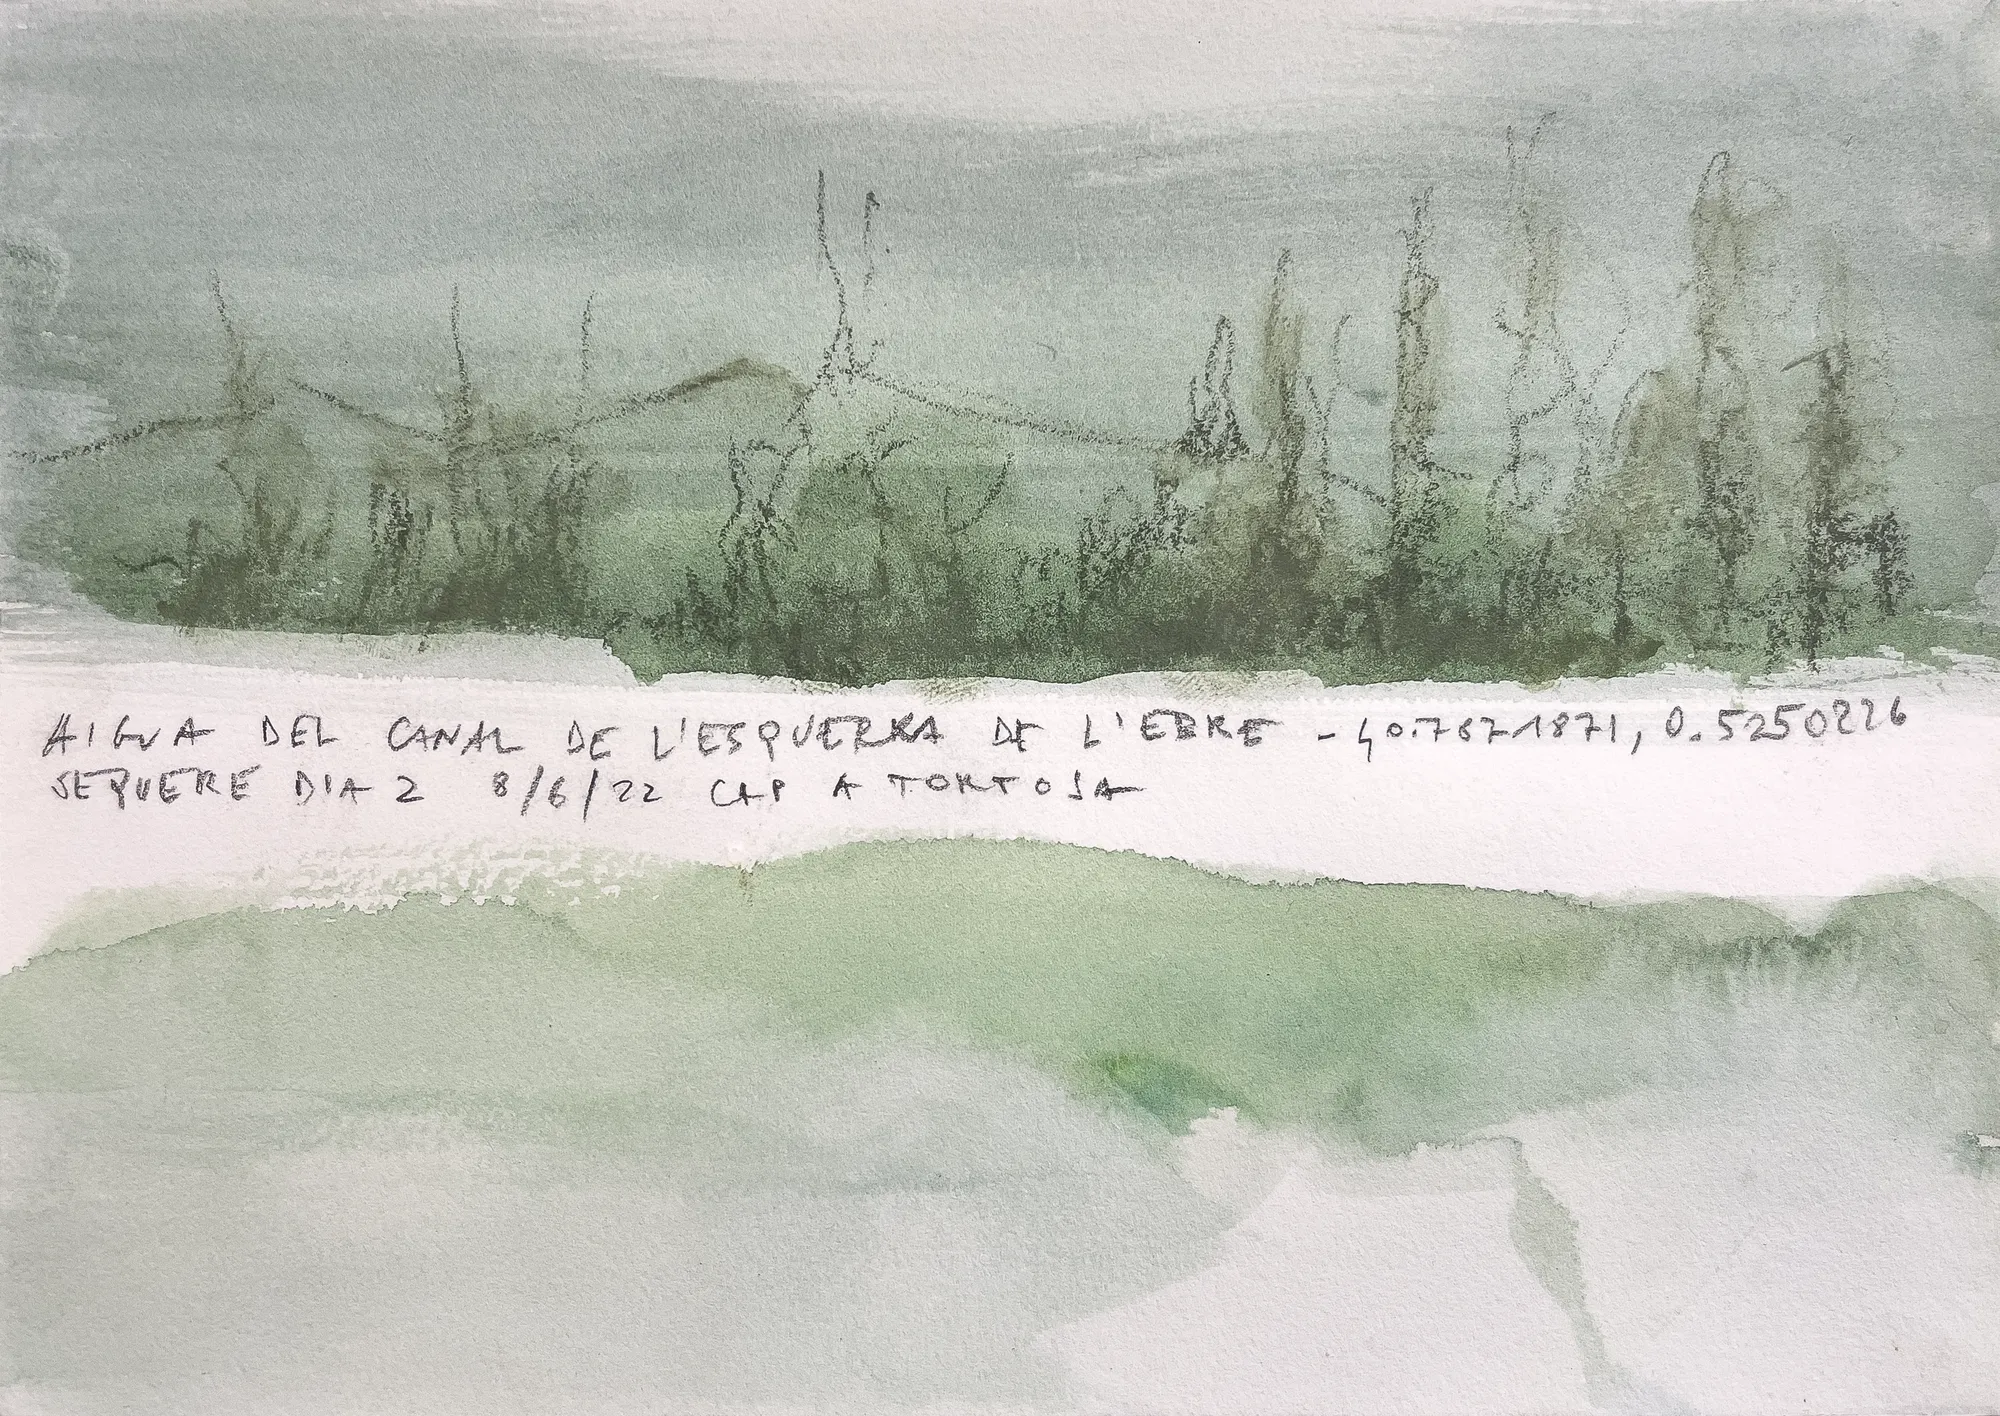 AIGUA DEL CANAL DE L'ESQUERRA DE L'EBRE - 40.7671871, 0.5250226
SEQUERE DIA 2 8/6/22 CAP A TORTOSA